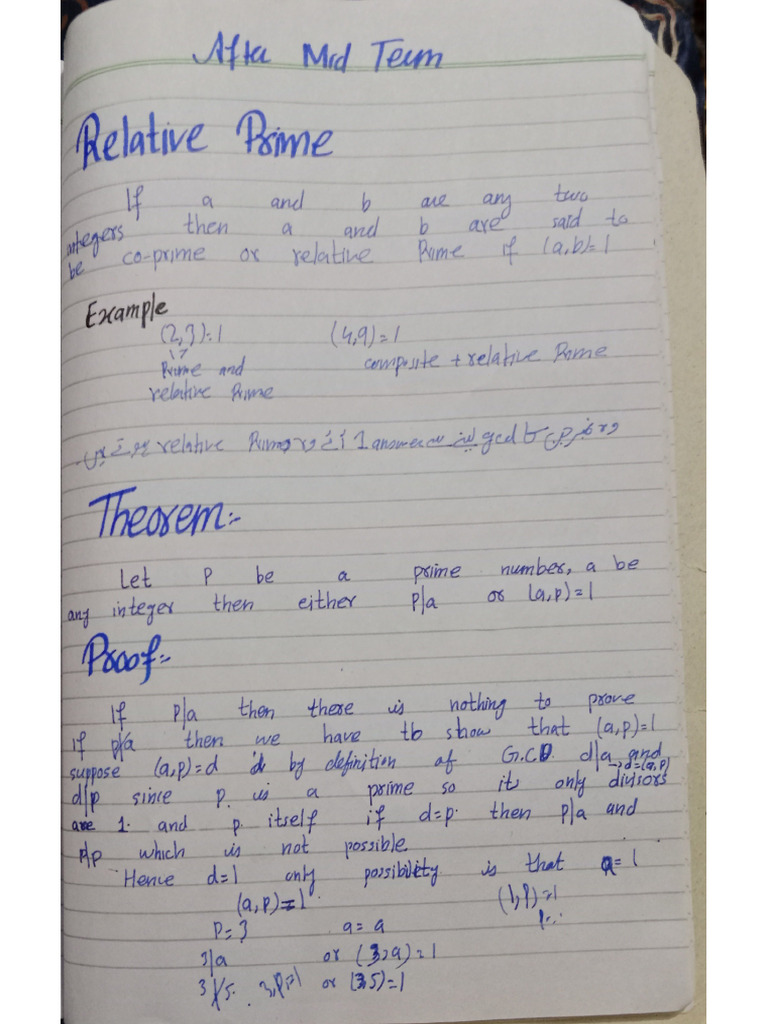 After Mid Term
Relative Prime
If a and b are any two
integers then a and b are said to
be co-prime or relative Prime if (a,b)=1
Example
(2,3)=1 (4,9)=1
Prime and composite + relative Prime
relative Prime
relative Prime 1 answer gcd
Theorem:-
Let P be a prime number, a be
any integer then either P|a or (a,p)=1
Proof:-
If P|a then there is nothing to prove
if p∤a then we have to show that (a,p)=1
suppose (a,p)=d by definition of G.C.D d|a and
→d=(a,p)
d|p since p is a prime so it only divisors
are 1 and p itself if d=p then p|a and
p|p which is not possible
Hence d=1 only possibility is that a=1
(a,p)=1 (1,P)=1
P=3 a=a
3|a or (3,a)=1
3∤5 3,P=1 or (3,5)=1